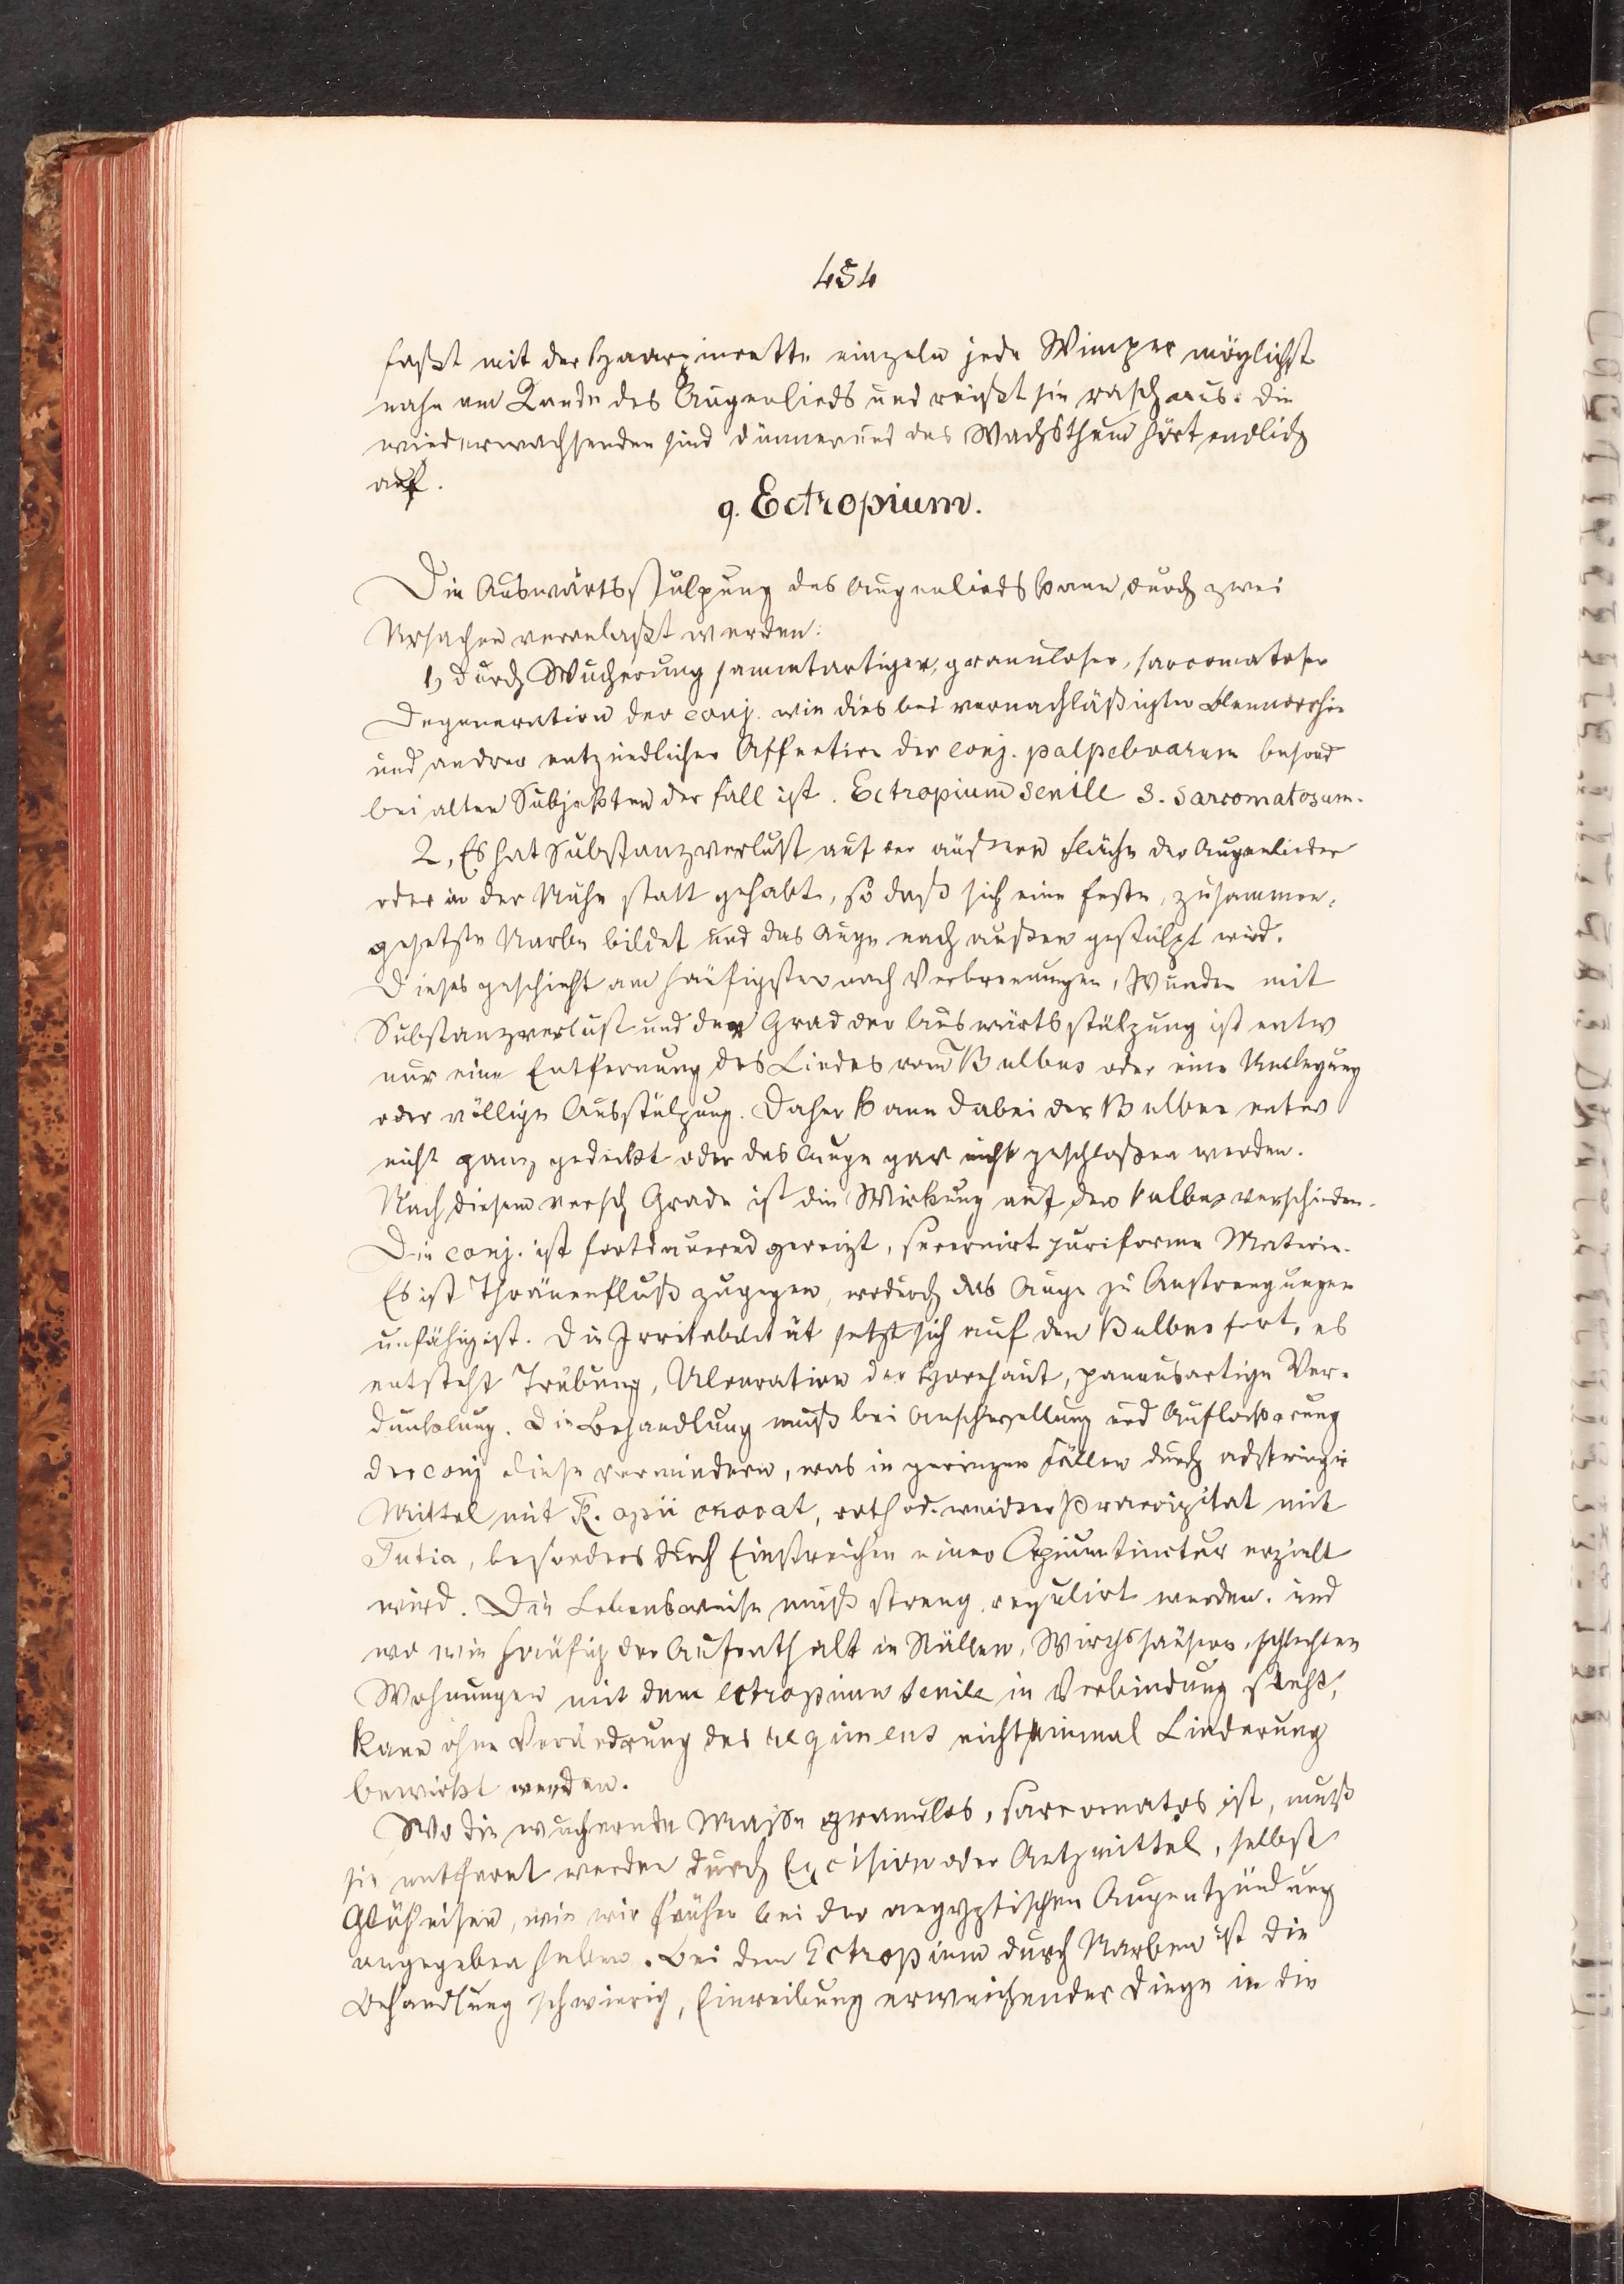 454
faßt mit der Haarpincette einzeln jede Wimper möglichst
nahe am Rande des Augenlieds und reißt sie rasch aus. Die
wiederwachsenden sind dünner und das Wachsthum hört endlich
auf.
9. Ectropium.
Die Auswärtsstülpung des Augenlieds kann durch zwei
Ursachen veranlaßt werden:
1, durch Wucherung sammtartiger, granuloser, sarcomatoser
Degeneration der conj. wie dies bei vernachläßigter Blennorrhie
und andrer entzündlicher Affection der conj. palpebrarum besond
bei alten Subjekten der Fall ist. Ectropium senile s. sarcomatosum.
2, Es hat Substanzverlust auf der äußren Fläche der Augenlieder
oder in der Nähe statt gehabt, so daß sich eine feste, zusammen-
gesetzte Narbe bildet und das Auge nach außen gestülpt wird.
Dieses geschieht am häufigsten nach Verbrennungen, Wunden mit
Substanzverlust und der Grad der Auswärtsstülpung ist entw
nur eine Entfernung des Liedes vom Bulbus oder eine Umlegung
oder völlige Ausstülpung. Daher kann dabei der Bulbus entw
nicht ganz gedeckt oder das Auge gar nicht geschloßen werden.
Nach diesem versch Grade ist die Wirkung auf den Bulbus verschieden.
Die conj. ist fortdauernd gereizt, secernirt puriforme Materie.
Es ist Thränenfluß zugegen, wodurch das Auge zu Anstrengungen
unfähig ist. Die Irritabilität setzt sich auf den Bulbus fort, es
entsteht Trübung, Ulceration der Hornhaut, pannusartige Ver-
dunkelung. Die Behandlung muß bei Anschwellung und Auflockerung
der conj diese vermindern, was in geringen Fällen durch adstringir
Mittel mit opii crocat, roth od. weißer Praecipitat mit
Tutia, besonders durch Einstreichen einer Opiumtinctur erzielt
wird. Die Lebensweise muß streng regulirt werden. und
wo wie häufig der Aufenthalt in Ställen, Wirthshäusern, schlechten
Wohnungen mit dem ectropium senile in Verbindung steht,
kann ohne Verändrung des regimens nicht einmal Linderung
bewirkt werden.
Wo die wuchernde Maße granulos, sarcomatos ist, muß
sie entfernt werden durch Excision oder Aetzmittel, selbst
Glüheisen, wie wir früher bei der aegyptischen Augentzündung
angegeben haben. Bei dem Ectropium durch Narben ist die
Behandlung schwierig, Einreibung erweichender Dinge in die